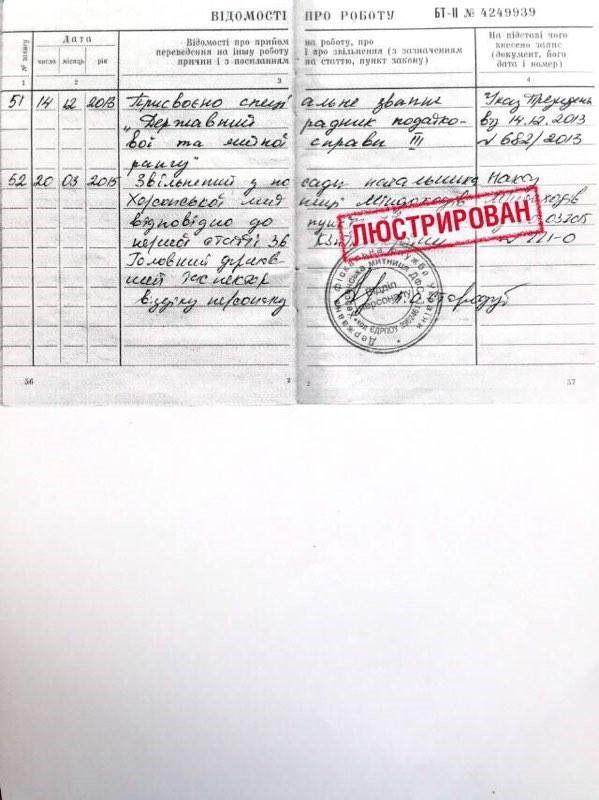 ВІДОМОСТІ ПРО РОБОТУ БТ-ІІ № 4249939
№ запису
Дата
число місяць рік
Відомості про прийом
переведення на іншу роботу
причин і з посиланням
на роботу, про
і про звільнення (з зазначенням
на статтю, пункт закону)
На підставі чого
внесено запис
(документ, його
дата і номер)
1 2 3 4
51 14 12 2013 Присвоєно спеці альне звання Указ Президен
„Державний радник податко- від 14.12.2013
вої та митної справи ІІІ № 682/2013
рангу"
52 20 03 2015 Звільнений з по сади начальника Наказ
Херсонської мит ниці Міндоходів Міндоходів
відповідно до пункту
першої статті 36 КЗп -О
Головний держав
ний інспектор
відділу персоналу
ЛЮСТРИРОВАН
Державна фіскальна служба України
Херсонська митниця ДФС
Відділ
персоналу
56 2 2 57